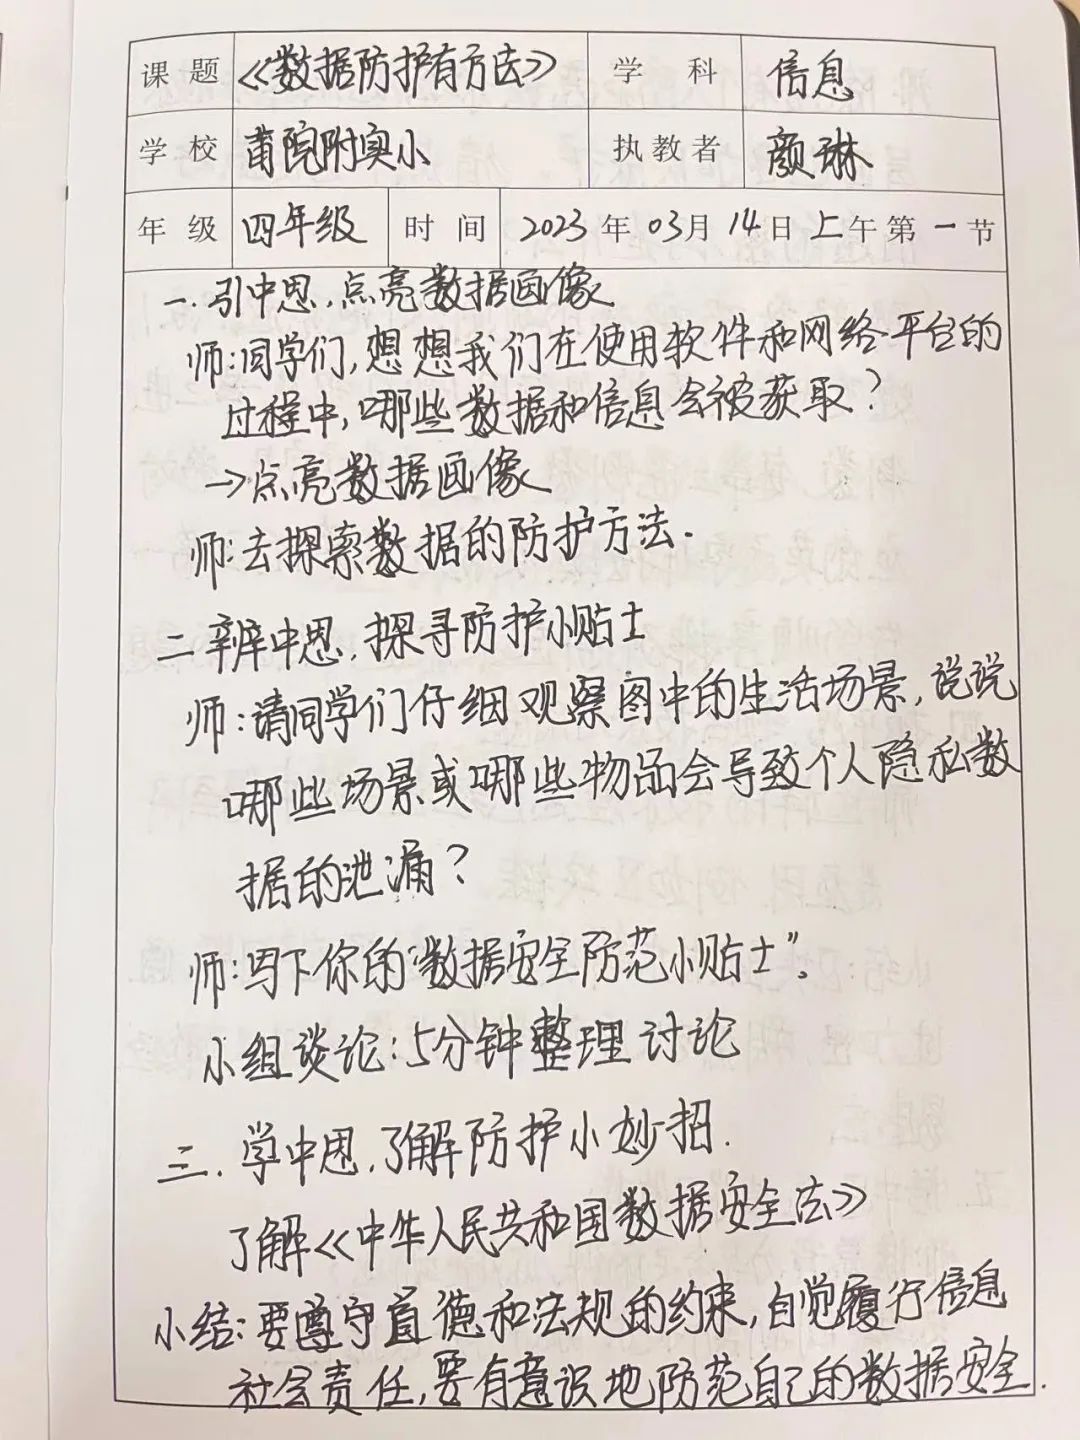 课题 《数据防护有方法》 学科 信息
学校 莆院附实小 执教者 颜琳
年级 四年级 时间 2023年03月14日上午第一节
一.引中思,点亮数据画像
师:同学们,想想我们在使用软件和网络平台的
过程中,哪些数据和信息会被获取?
→点亮数据画像
师:去探索数据的防护方法.
二 辨中思,探寻防护小贴士
师:请同学们仔细观察图中的生活场景,说说
哪些场景或哪些物品会导致个人隐私数
据的泄漏?
师:写下你的“数据安全防范小贴士”。
小组谈论:5分钟整理讨论
三.学中思,了解防护小妙招.
了解《中华人民共和国数据安全法》
小结:要遵守道德和法规的约束,自觉履行信息
社会责任,要有意识地防范自己的数据安全.